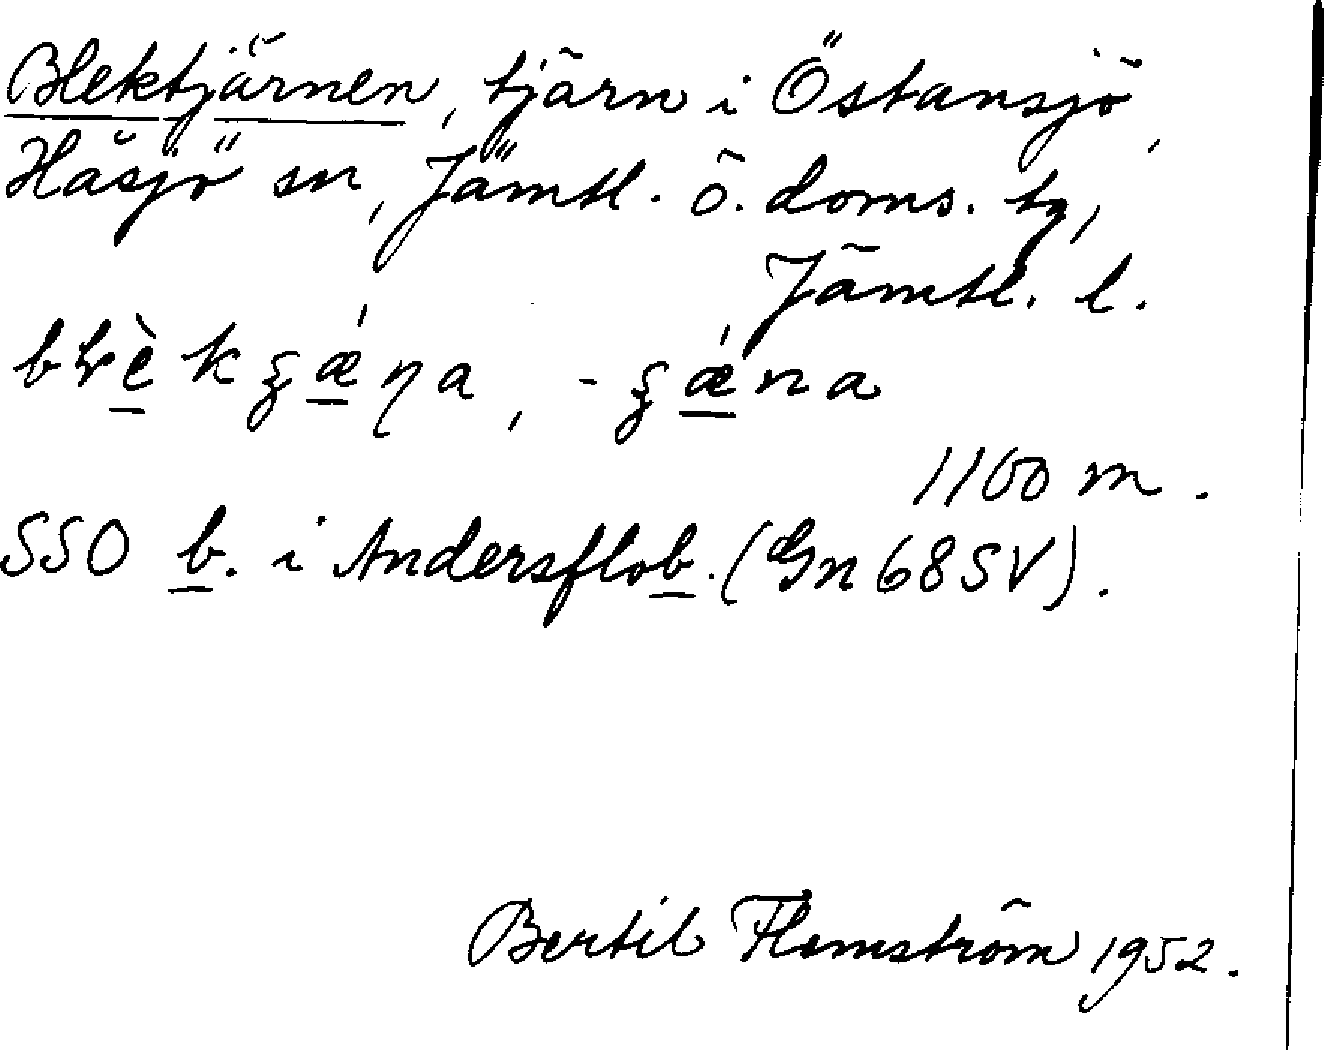 Blektjärnen, tjärn i Östansjö,
Håsjö sn, Jämtl. ö. doms. tg,
Jämtl. l.
1100 m.
SSO b. i Andersflob. (Gn 68 SV).
Bertil Flemström 1952.